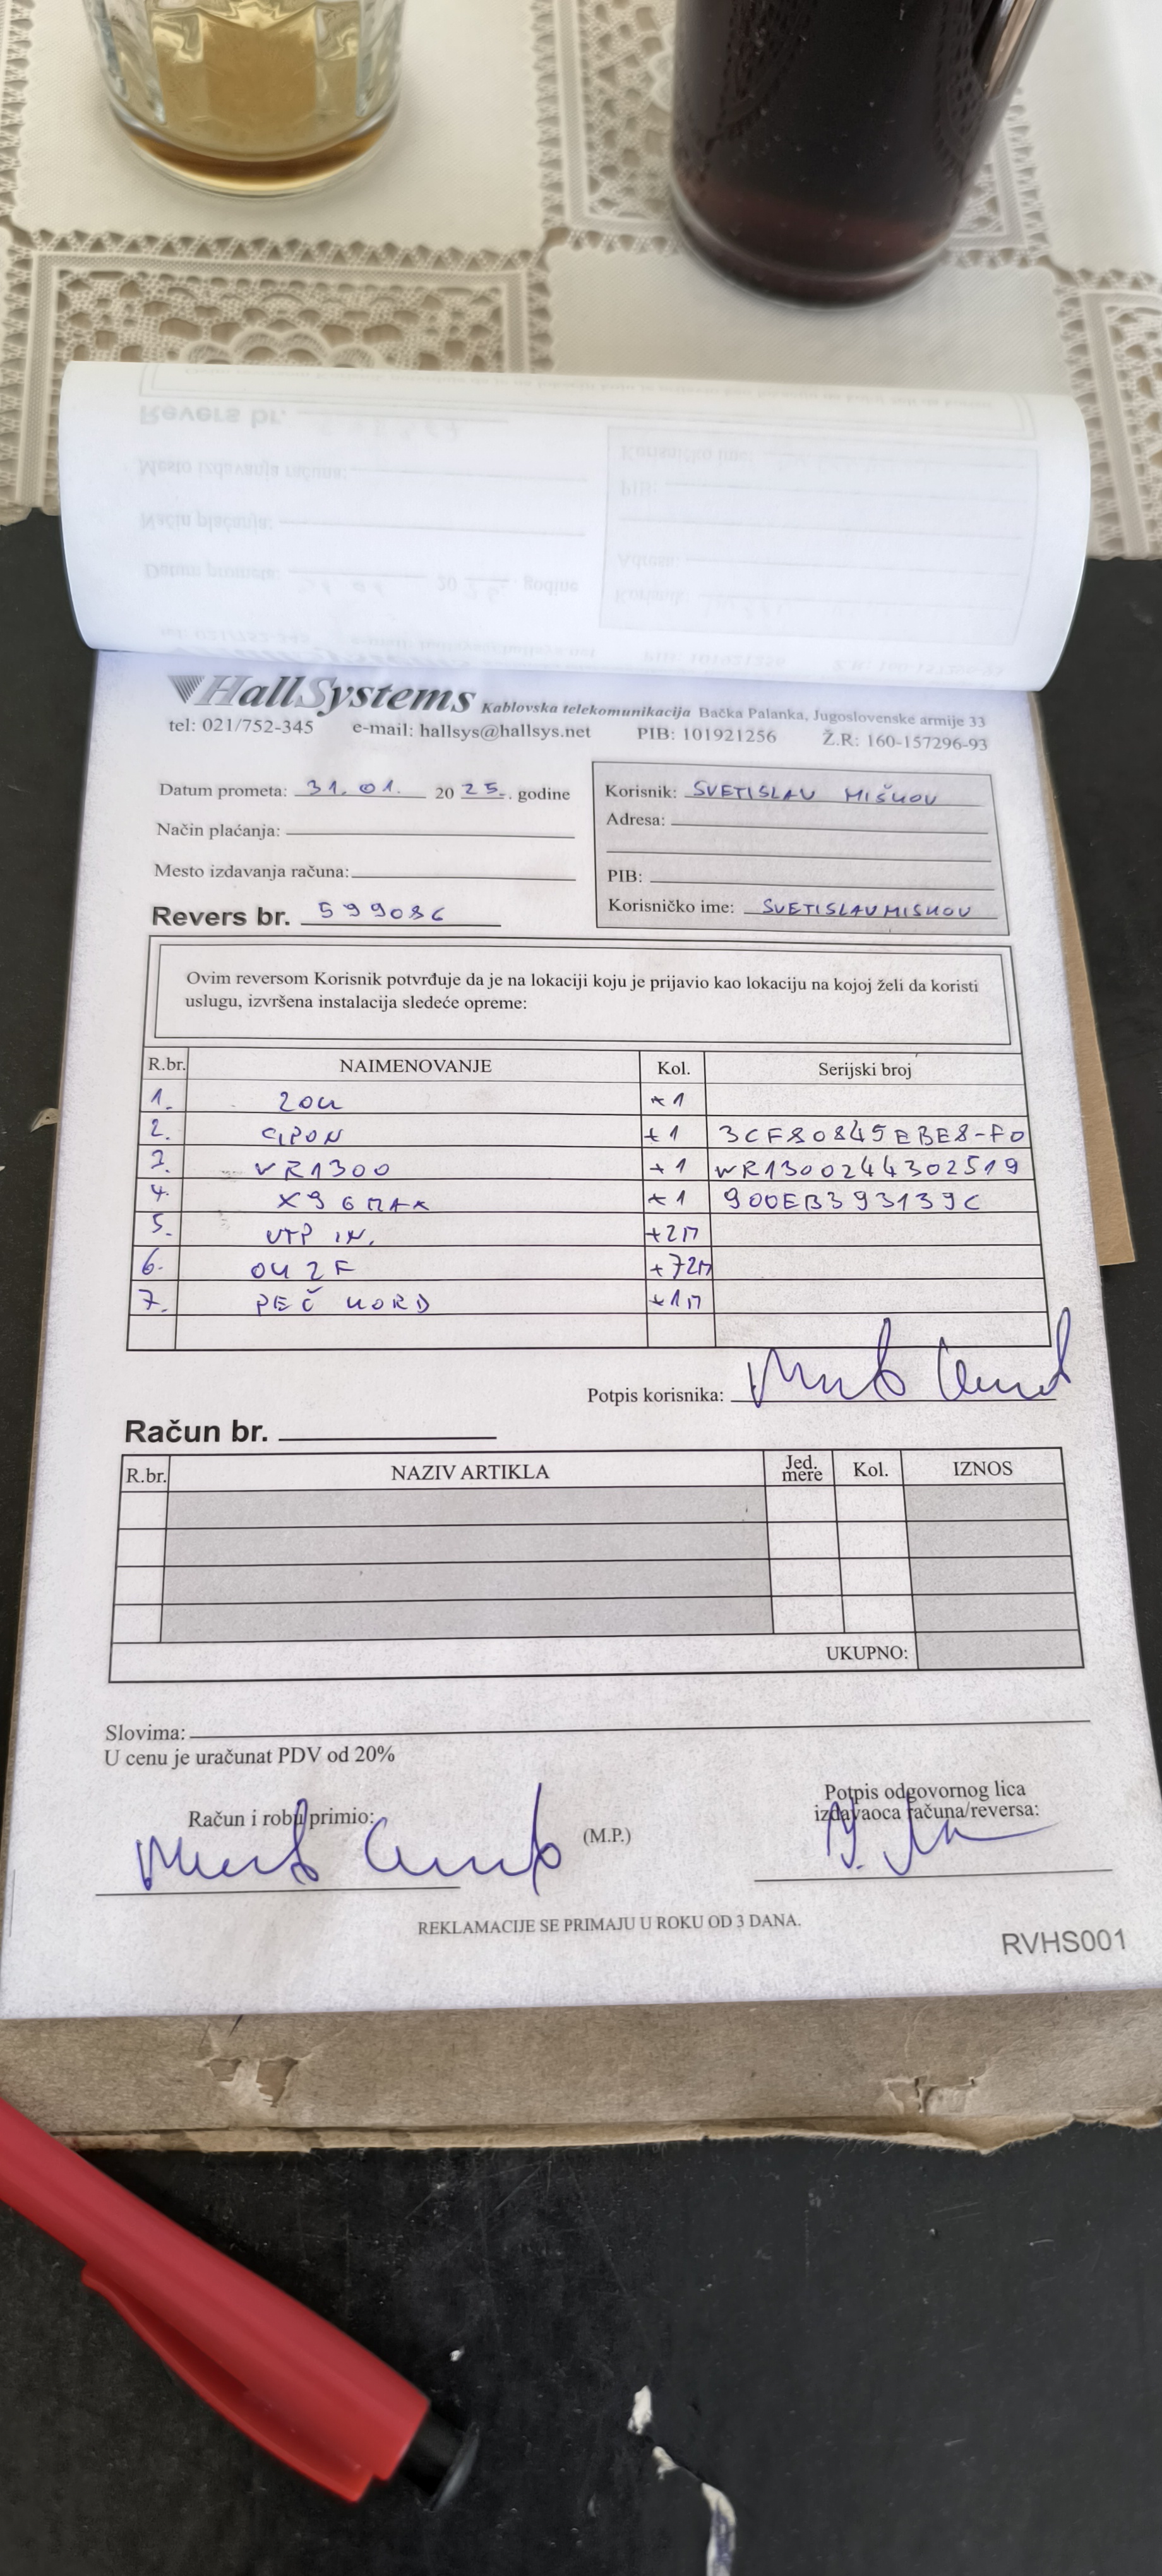 HallSystems Kablovska telekomunikacija Bačka Palanka, Jugoslovenske armije 33
tel: 021/752-345 e-mail: hallsys@hallsys.net PIB: 101921256 Ž.R: 160-157296-93
Datum prometa: 31.01. 2025. godine
Način plaćanja:
Mesto izdavanja računa:
Revers br. 599086
Korisnik: SVETISLAV MIŠKOV
Adresa:
PIB:
Korisničko ime: SVETISLAVMISKOV
Ovim reversom Korisnik potvrđuje da je na lokaciji koju je prijavio kao lokaciju na kojoj želi da koristi
uslugu, izvršena instalacija sledeće opreme:
R.br. NAIMENOVANJE Kol. Serijski broj
1. ZOK +1
2. GPON +1 3CF80845EBE8-F0
3. VR1300 +1 WR1300244302519
4. X96 MAX +1 900EB393139C
5. UTP IN. +2M
6. OK 2F +72M
7. PEČ KORD +1M
Potpis korisnika:
Račun br.
R.br. NAZIV ARTIKLA Jed. mere Kol. IZNOS
UKUPNO:
Slovima:
U cenu je uračunat PDV od 20%
Račun i robu primio:
(M.P.)
Potpis odgovornog lica
izdavaoca računa/reversa:
REKLAMACIJE SE PRIMAJU U ROKU OD 3 DANA.
RVHS001